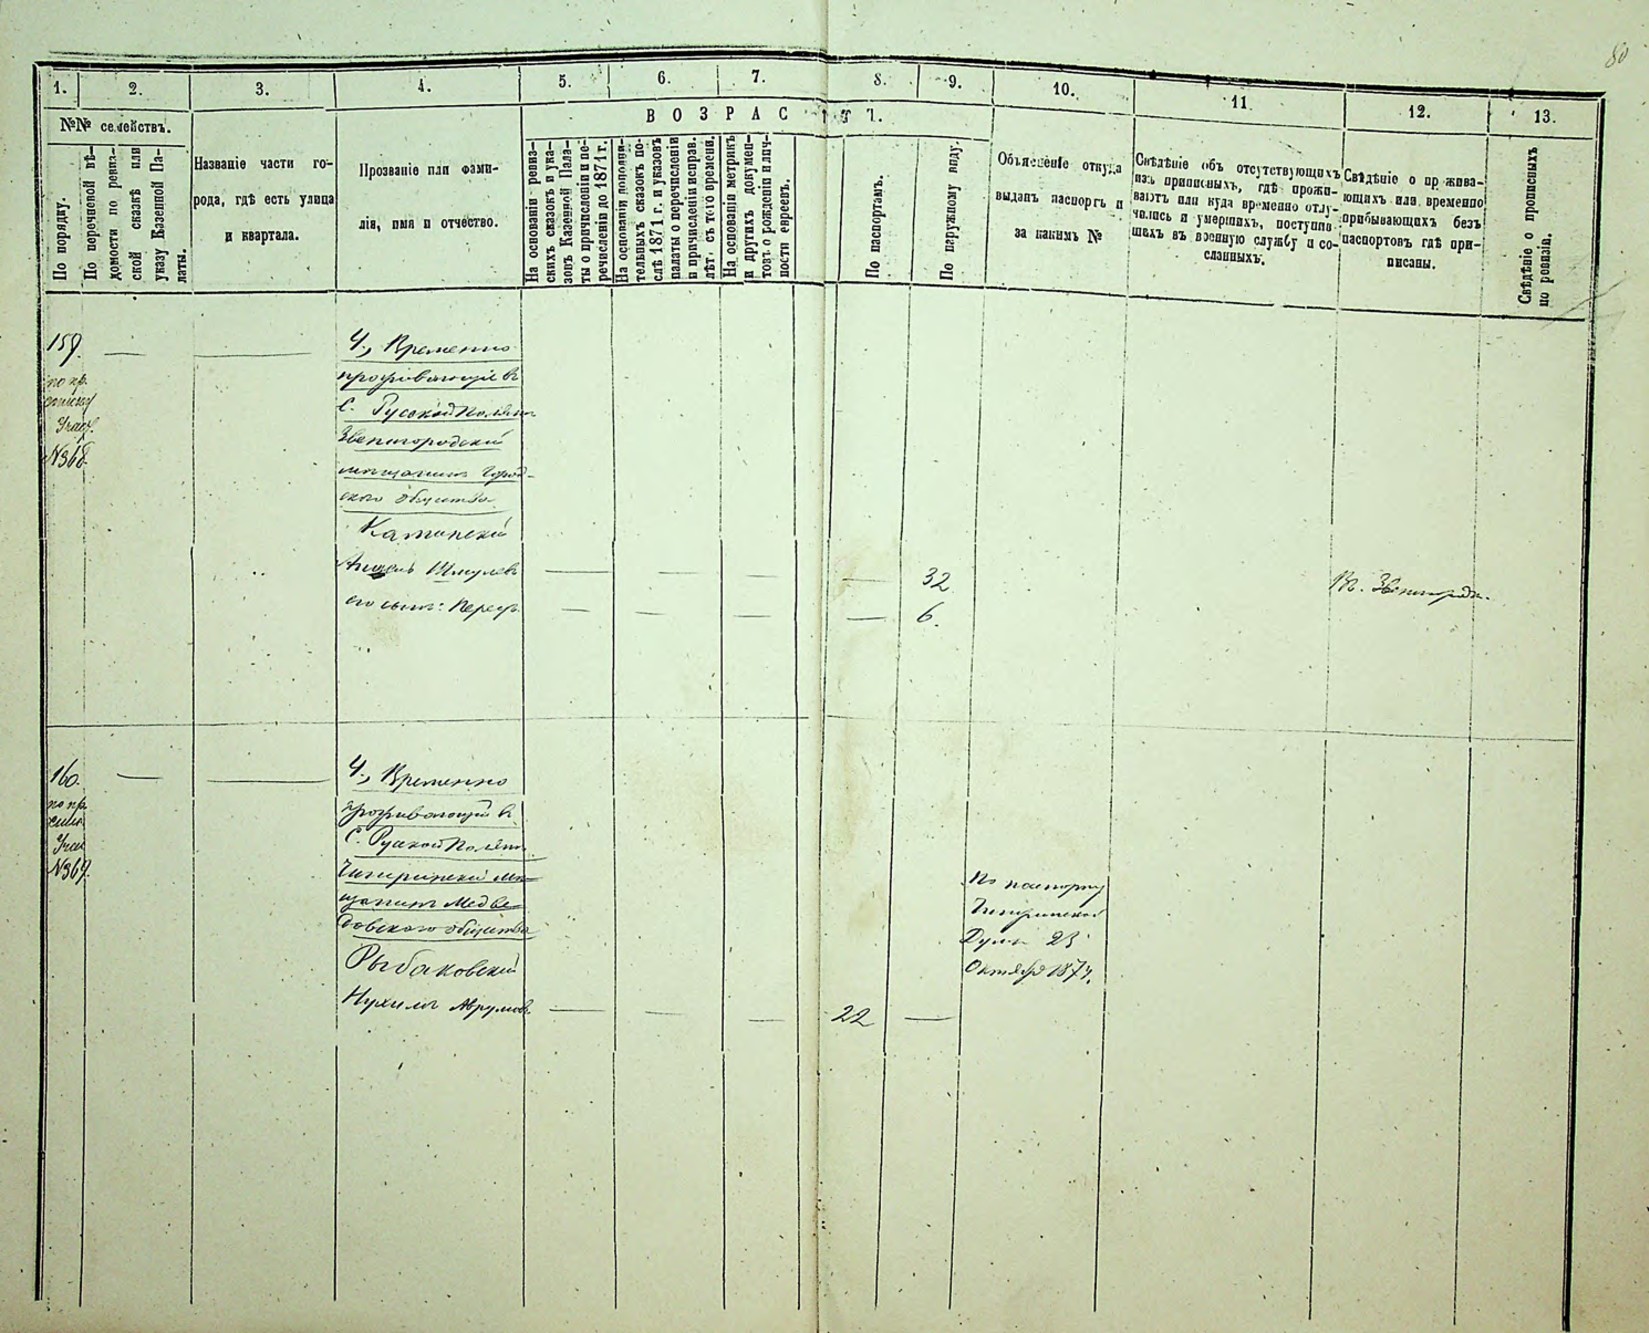 80
1. 2. 3. 4. 5. 6. 7. 8. 9. 10. 11. 12. 13.
№№ семействъ.
По порядку.
По перечневой вѣ-
домости по ревиз-
ской сказкѣ или
указу Казенной Па-
латы.
Названіе части го-
рода, гдѣ есть улица
и квартала.
Прозваніе или фами-
лія, имя и отчество.
ВОЗРАСТЪ.
На основаніи ревиз-
скихъ сказокъ и ука-
зовъ Казенной Пала-
ты о причисленіи и пе-
речисленіи до 1871 г.
На основаніи дополни-
тельныхъ сказокъ по-
слѣ 1871 г. и указовъ
палаты о перечисленіи
и причисленіи исправ.
лѣт. съ того времени.
На основаніи метрикъ
и другихъ докумен-
товъ о рожденіи и лич-
ности евреевъ.
По паспортамъ.
По наружному виду.
Объясненіе откуда
выданъ паспортъ и
за какимъ №
Свѣдѣніе объ отсутствующихъ
изъ приписныхъ, гдѣ прожи-
ваютъ или куда временно отлу-
чились и умершихъ, поступив-
шихъ въ военную службу и со-
сланныхъ.
Свѣдѣніе о прожива-
ющихъ или временно
прибывающихъ безъ
паспортовъ гдѣ при-
писаны.
Свѣдѣніе о прописныхъ
по ревизіи.
159. — — Ч., Временно
по пр.
проживающіе въ
С. Русской Поляне
Звенигородскій
№368.
мещанинъ Город-
ского общества
Каминскій
Аншель Шмулевъ — — — — 32 Въ Звенигородк.
его сынъ: Берко — — — — 6.
160. — — Ч., Временно
по пр.
проживающій въ
С. Русской Поляне
№369.
Чигиринскій ме-
щанинъ Медве-
довского общества
Рыбаковскій
По паспорту
Чигиринской
Думы 23
Октября 1874.
Нухимъ Аврумовъ — — — 22 —